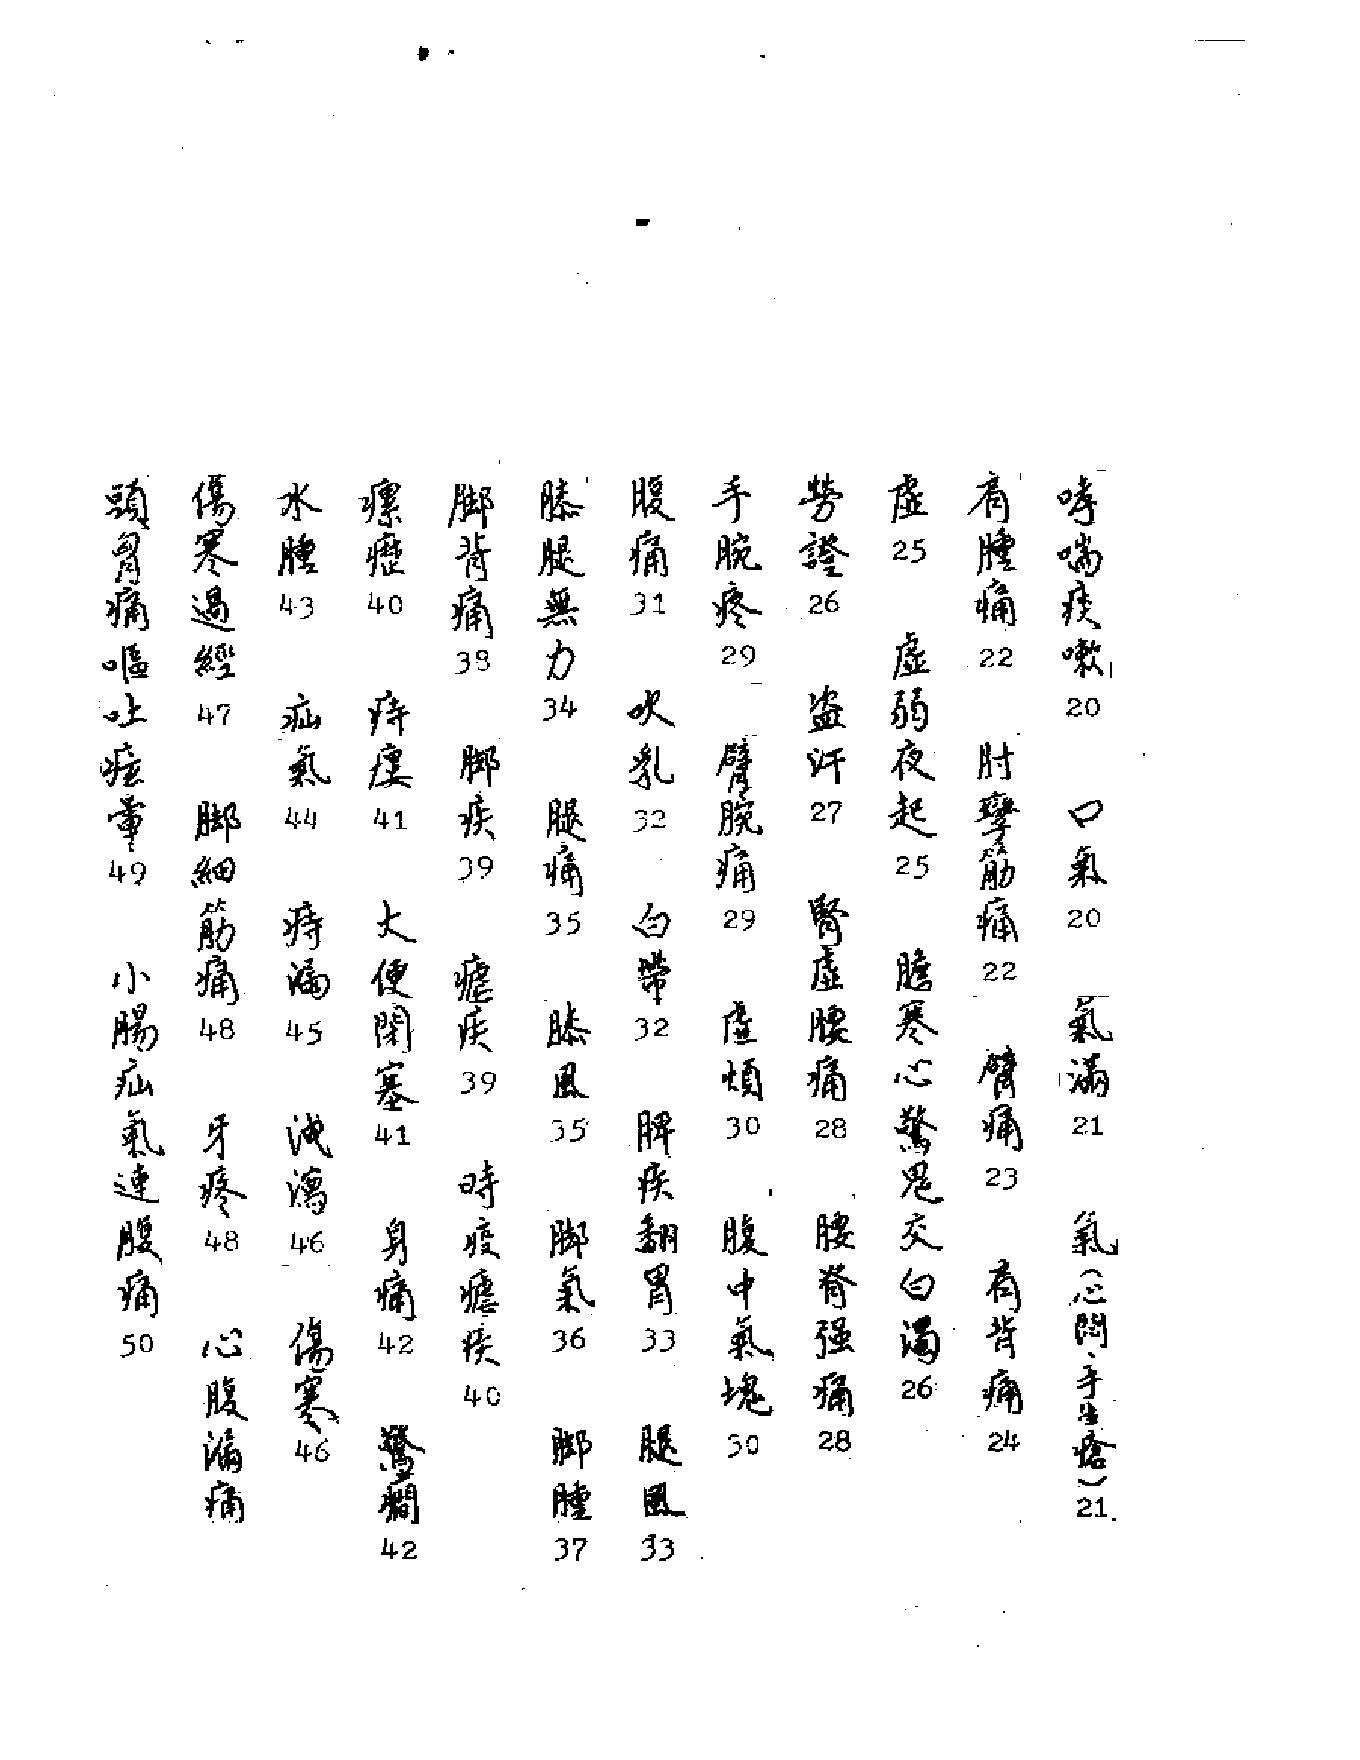 哮喘痰嗽 20 口氣 20 氣滿 21 氣(心悶、手生瘡) 21
肩腫痛 22 肘攣筋痛 22 臂痛 23 肩背痛 24
虛 25 虛弱夜起 25 膽寒心驚鬼交白濁 26
勞證 26 盜汗 27 腎虛腰痛 28 腰脊强痛 28
手腕疼 29 臂腕痛 29 虛煩 30 腹中氣塊 30
腹痛 31 吹乳 32 白帶 32 脾疾翻胃 33 腿風 33
膝腿無力 34 腿痛 35 膝風 35 脚氣 36 脚腫 37
脚背痛 38 脚疾 39 瘧疾 39 時疫瘧疾 40
瘰癧 40 痔瘻 41 大便閉塞 41 身痛 42 驚癇 42
水腫 43 疝氣 44 痔漏 45 洩瀉 46 傷寒 46
傷寒過經 47 脚細筋痛 48 牙疼 48 心腹滿痛
頭胃痛嘔吐眩暈 49 小腸疝氣連腹痛 50